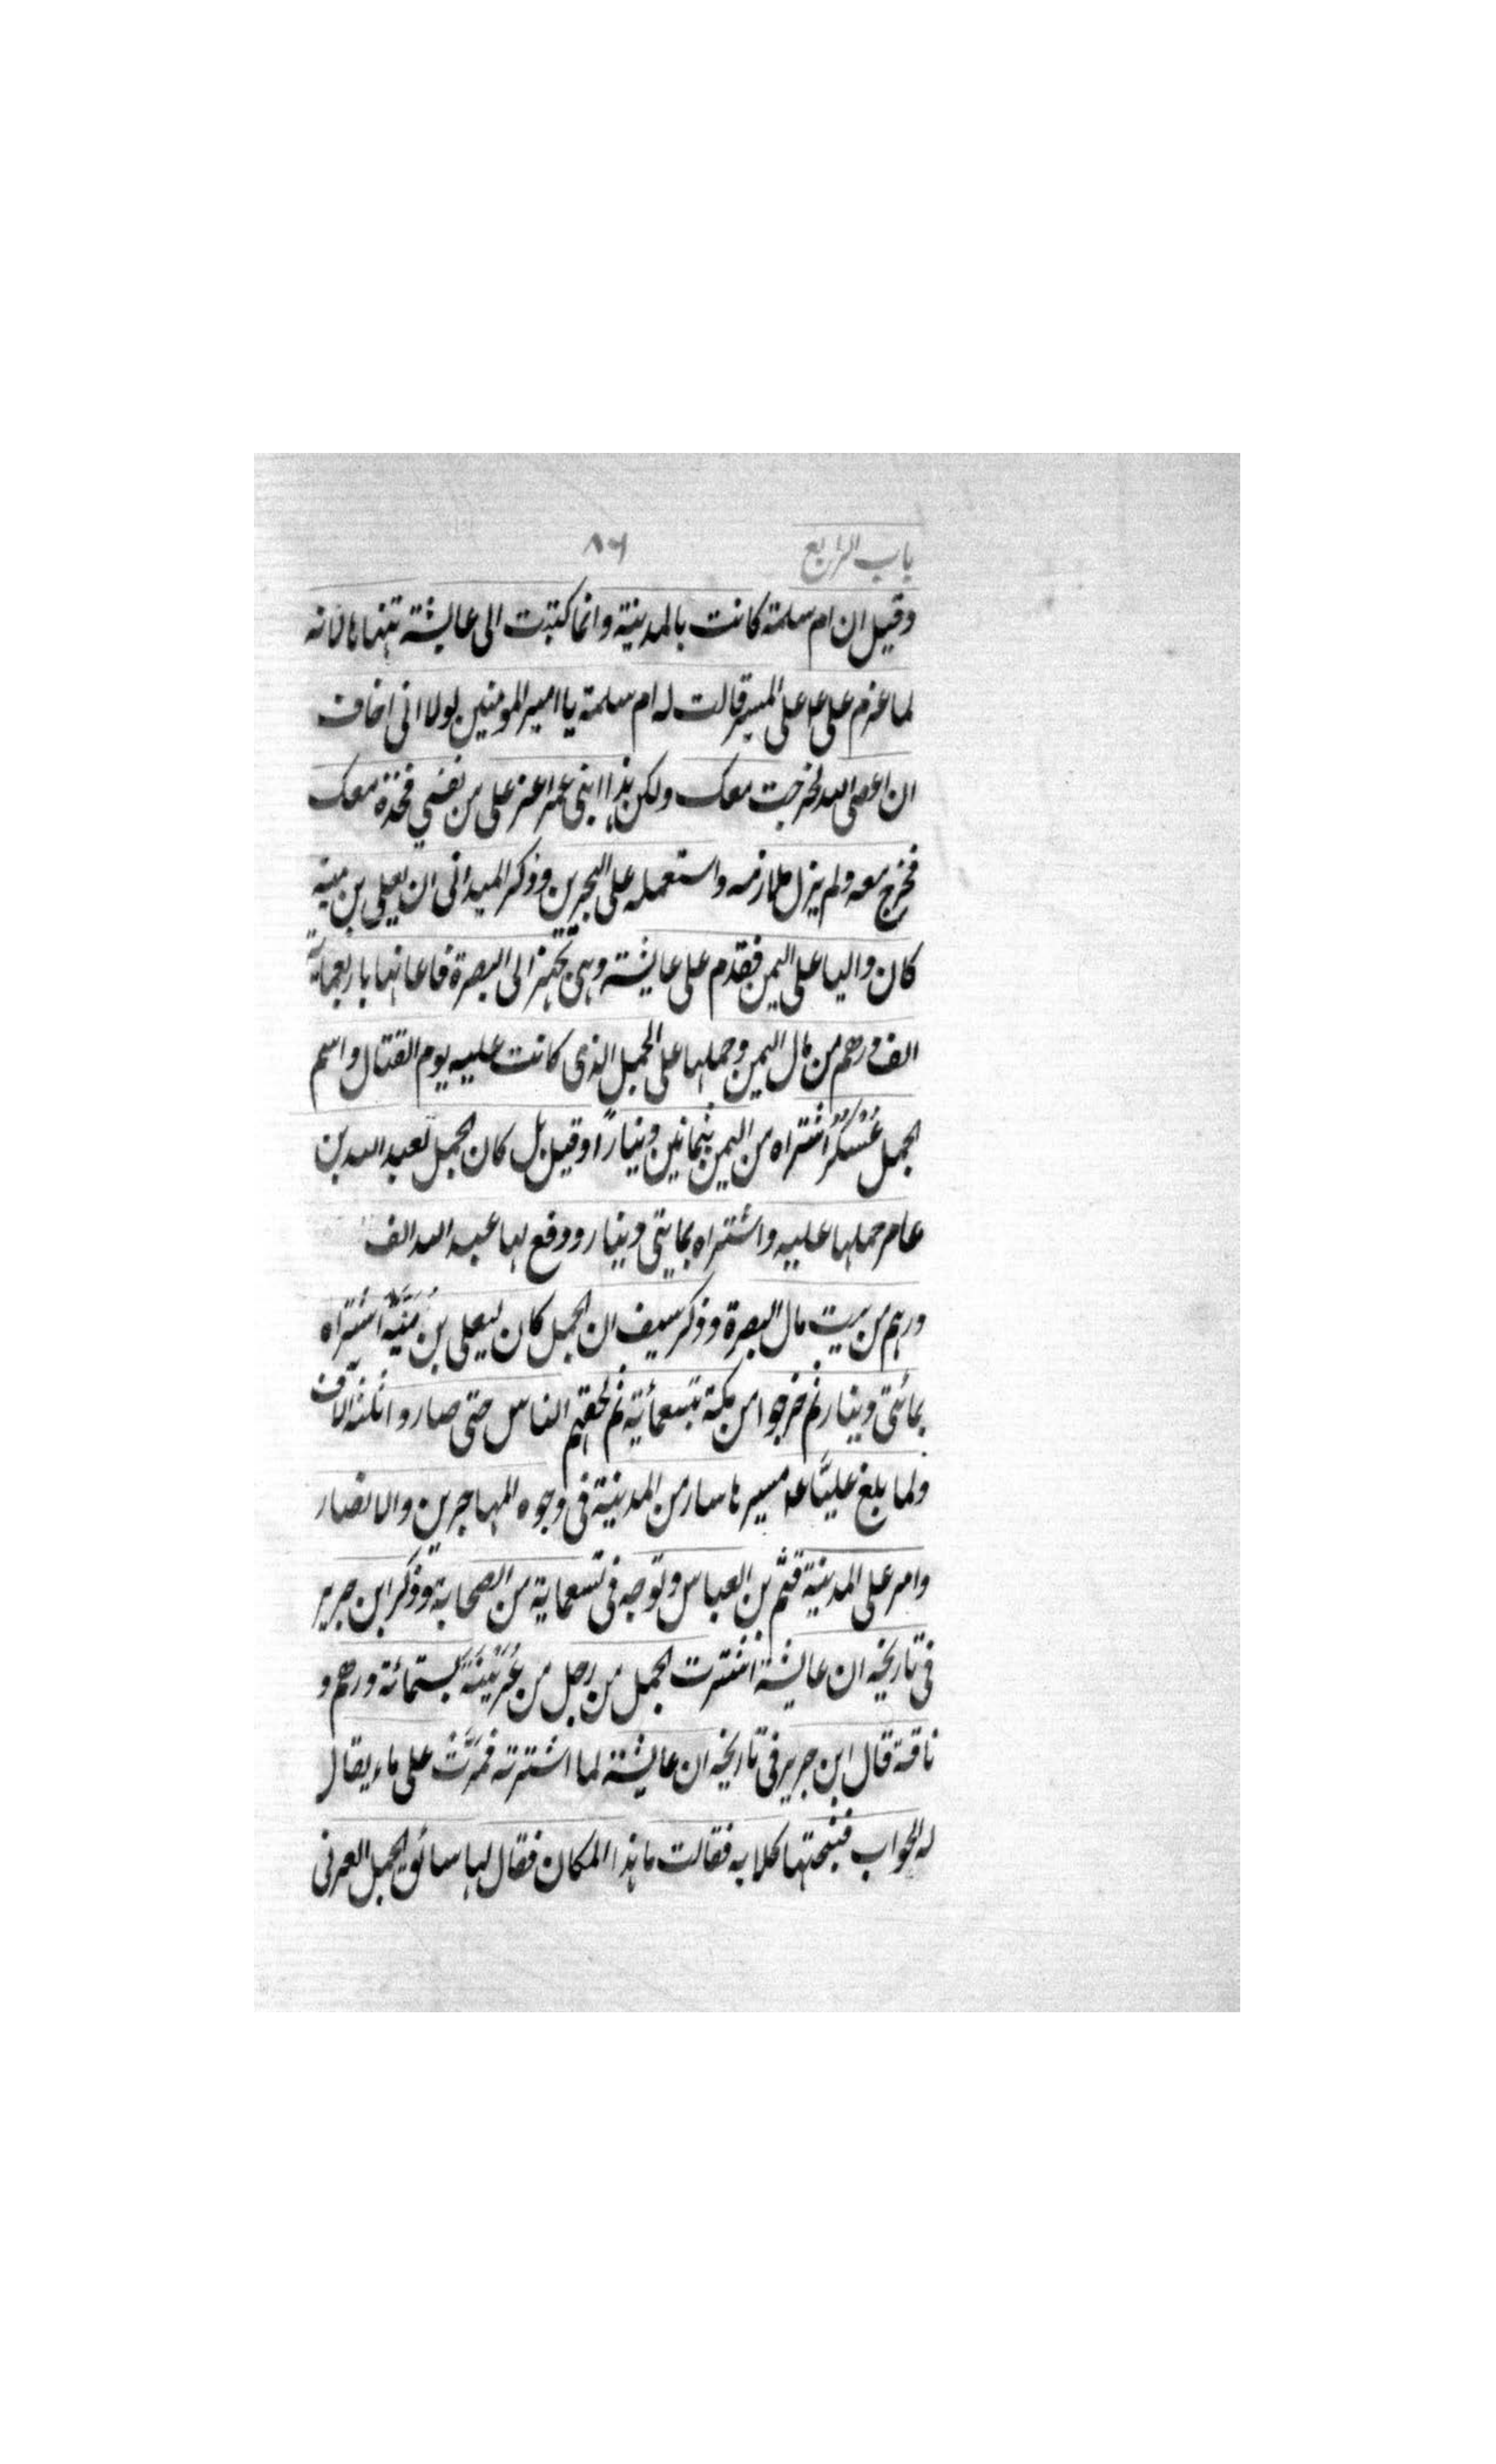 باب الرابع ٨٦
وقيل ان ام سلمة كانت بالمدينة وانما كتبت الى عايشة تنهاها لانه
لما عزم على ع على المسير قالت له ام سلمة يا امير المومنين لولا انى اخاف
ان اعصى الله لخرجت معك ولكن هذا ابنى عمر اعز على من نفسي فخذه معك
فخرج معه ولم يزل ملازمه واستعمله على البحرين وذكر الميدانى ان يعلى بن منيه
كان واليا على اليمن فقدم على عايشة وهى تجهز الى البصرة فاعانها باربعماية
الف درهم من مال اليمن وحملها على الجمل الذى كانت عليه يوم القتال واسم
الجمل عُسْكُر اشتراه من اليمن بثمانين دينارًا وقيل بل كان الجمل لعبد الله بن
عامر حملها عليه واشتراه بمايتى دينار ودفع لها عبد الله الف
درهم من بيت مال البصرة وذكر سيف ان الجمل كان ليعلى بن مُنَيَّه اشتراه
بمائتى دينار ثم خرجوا من مكة بتسعمائة ثم لحقهم الناس حتى صاروا ثلثة الآف
ولما بلغ عليًّا ع مسيرها سار من المدينة فى وجوه المهاجرين والانصار
وامر على المدينة قثم بن العباس وتوجه فى تسعماية من الصحابة وذكر ابن جرير
فى تاريخه ان عايشة اشترت الجمل من رجل من عُرَيْنَة بستمائة درهم و
ناقة قال ابن جرير فى تاريخه ان عايشة لما اشترته فمرَّتْ على ماء يقال
له الحواب فنبحتها كلابه فقالت ما هذا المكان فقال لها سائق الجمل العرنى